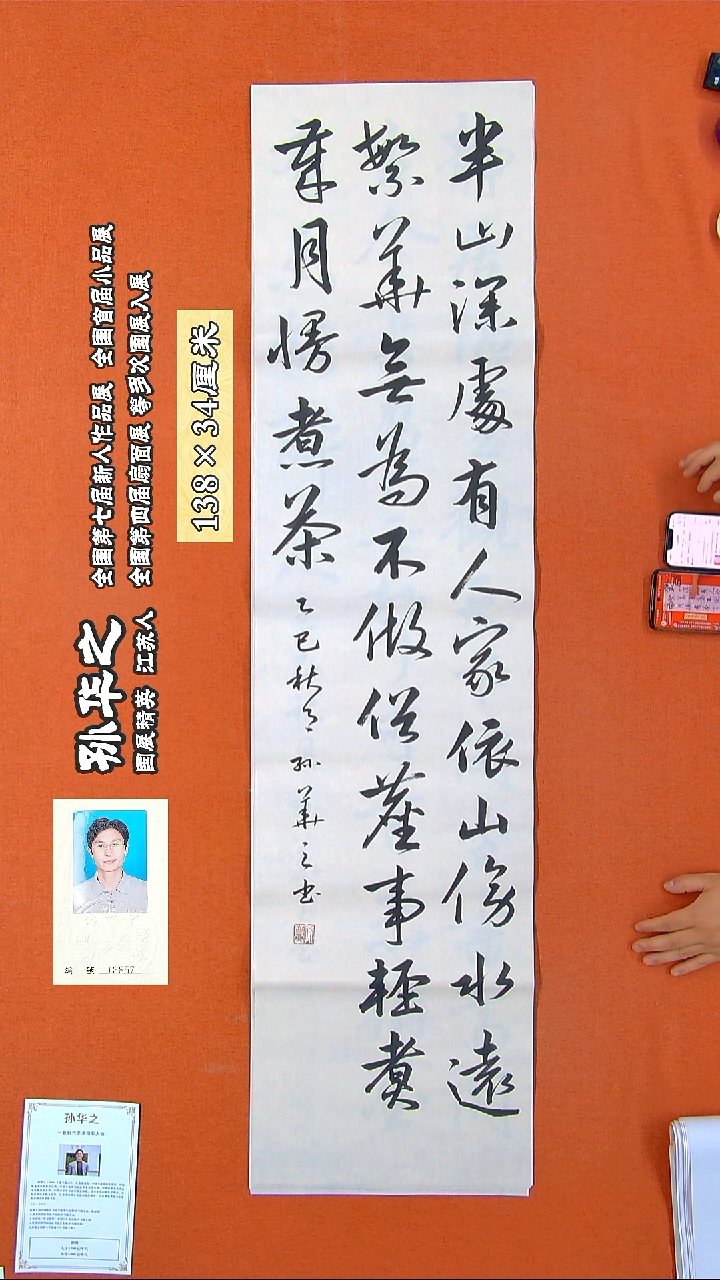 半山深處有人家依山傍水遠
繁華無為不做俗塵事輕煮
歲月慢煮茶
乙巳秋 孫華之书
孙华之
國展精英 江苏人
全國第七届新人作品展 全國首届小品展
全國第四届扇面展 等多次國展入展
138×34厘米
编號
孙华之